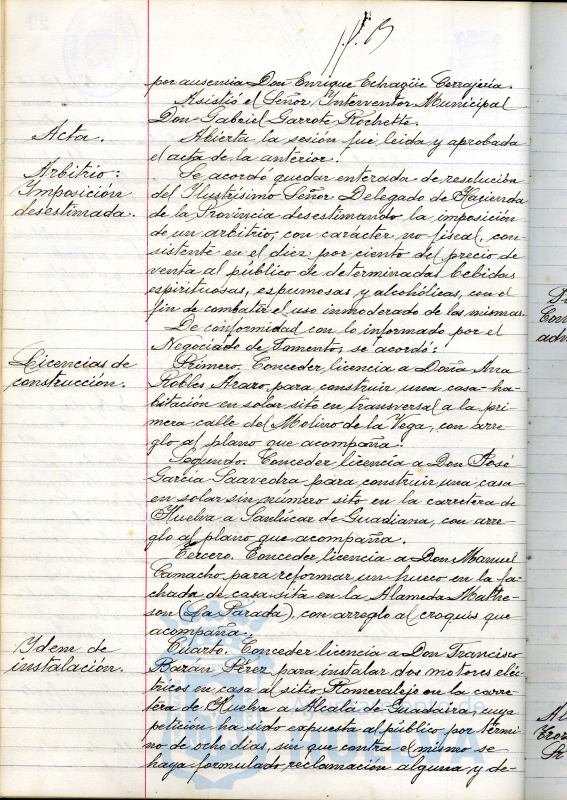 por ausencia Don Enrique Echagüe Cerrajería.
Asistió el Señor Interventor Municipal
Don Gabriel Garrote Rochette.
Acta.
Abierta la sesión fue leída y aprobada
el acta de la anterior.
Arbitrio:
Imposición
desestimada.
Se acordó quedar enterada de resolución
del Ilustrísimo Señor Delegado de Hacienda
de la Provincia desestimando la imposición
de un arbitrio, con carácter no fiscal, con-
sistente en el diez por ciento del precio de
venta al público de determinadas bebidas
espirituosas, espumosas y alcohólicas, con el
fin de combatir el uso inmoderado de las mismas.
De conformidad con lo informado por el
Negociado de Fomento, se acordó:
Licencias de
construcción.
Primero. Conceder licencia a Doña Ana
Robles para construir una casa-ha-
bitación en solar sito en transversal a la pri-
mera calle del Molino de la Vega, con arre-
glo al plano que acompaña.
Segundo. Conceder licencia a Don José
García Saavedra para construir una casa
en solar sin número sito en la carretera de
Huelva a Sanlúcar de Guadiana, con arre-
glo al plano que acompaña.
Tercero. Conceder licencia a Don Manuel
Camacho para reformar un hueco en la fa-
chada de casa sita en la Alameda Mathe-
son (La Parada), con arreglo al croquis que
acompaña.
Ydem de
instalación.
Cuarto. Conceder licencia a Don Francisco
Pérez para instalar dos motores eléc-
tricos en casa al sitio Romeralejo en la carre-
tera de Huelva a Alcalá de Guadaira, cuya
petición ha sido expuesta al público por térmi-
no de ocho días, sin que contra el mismo se
haya formulado reclamación alguna y de-